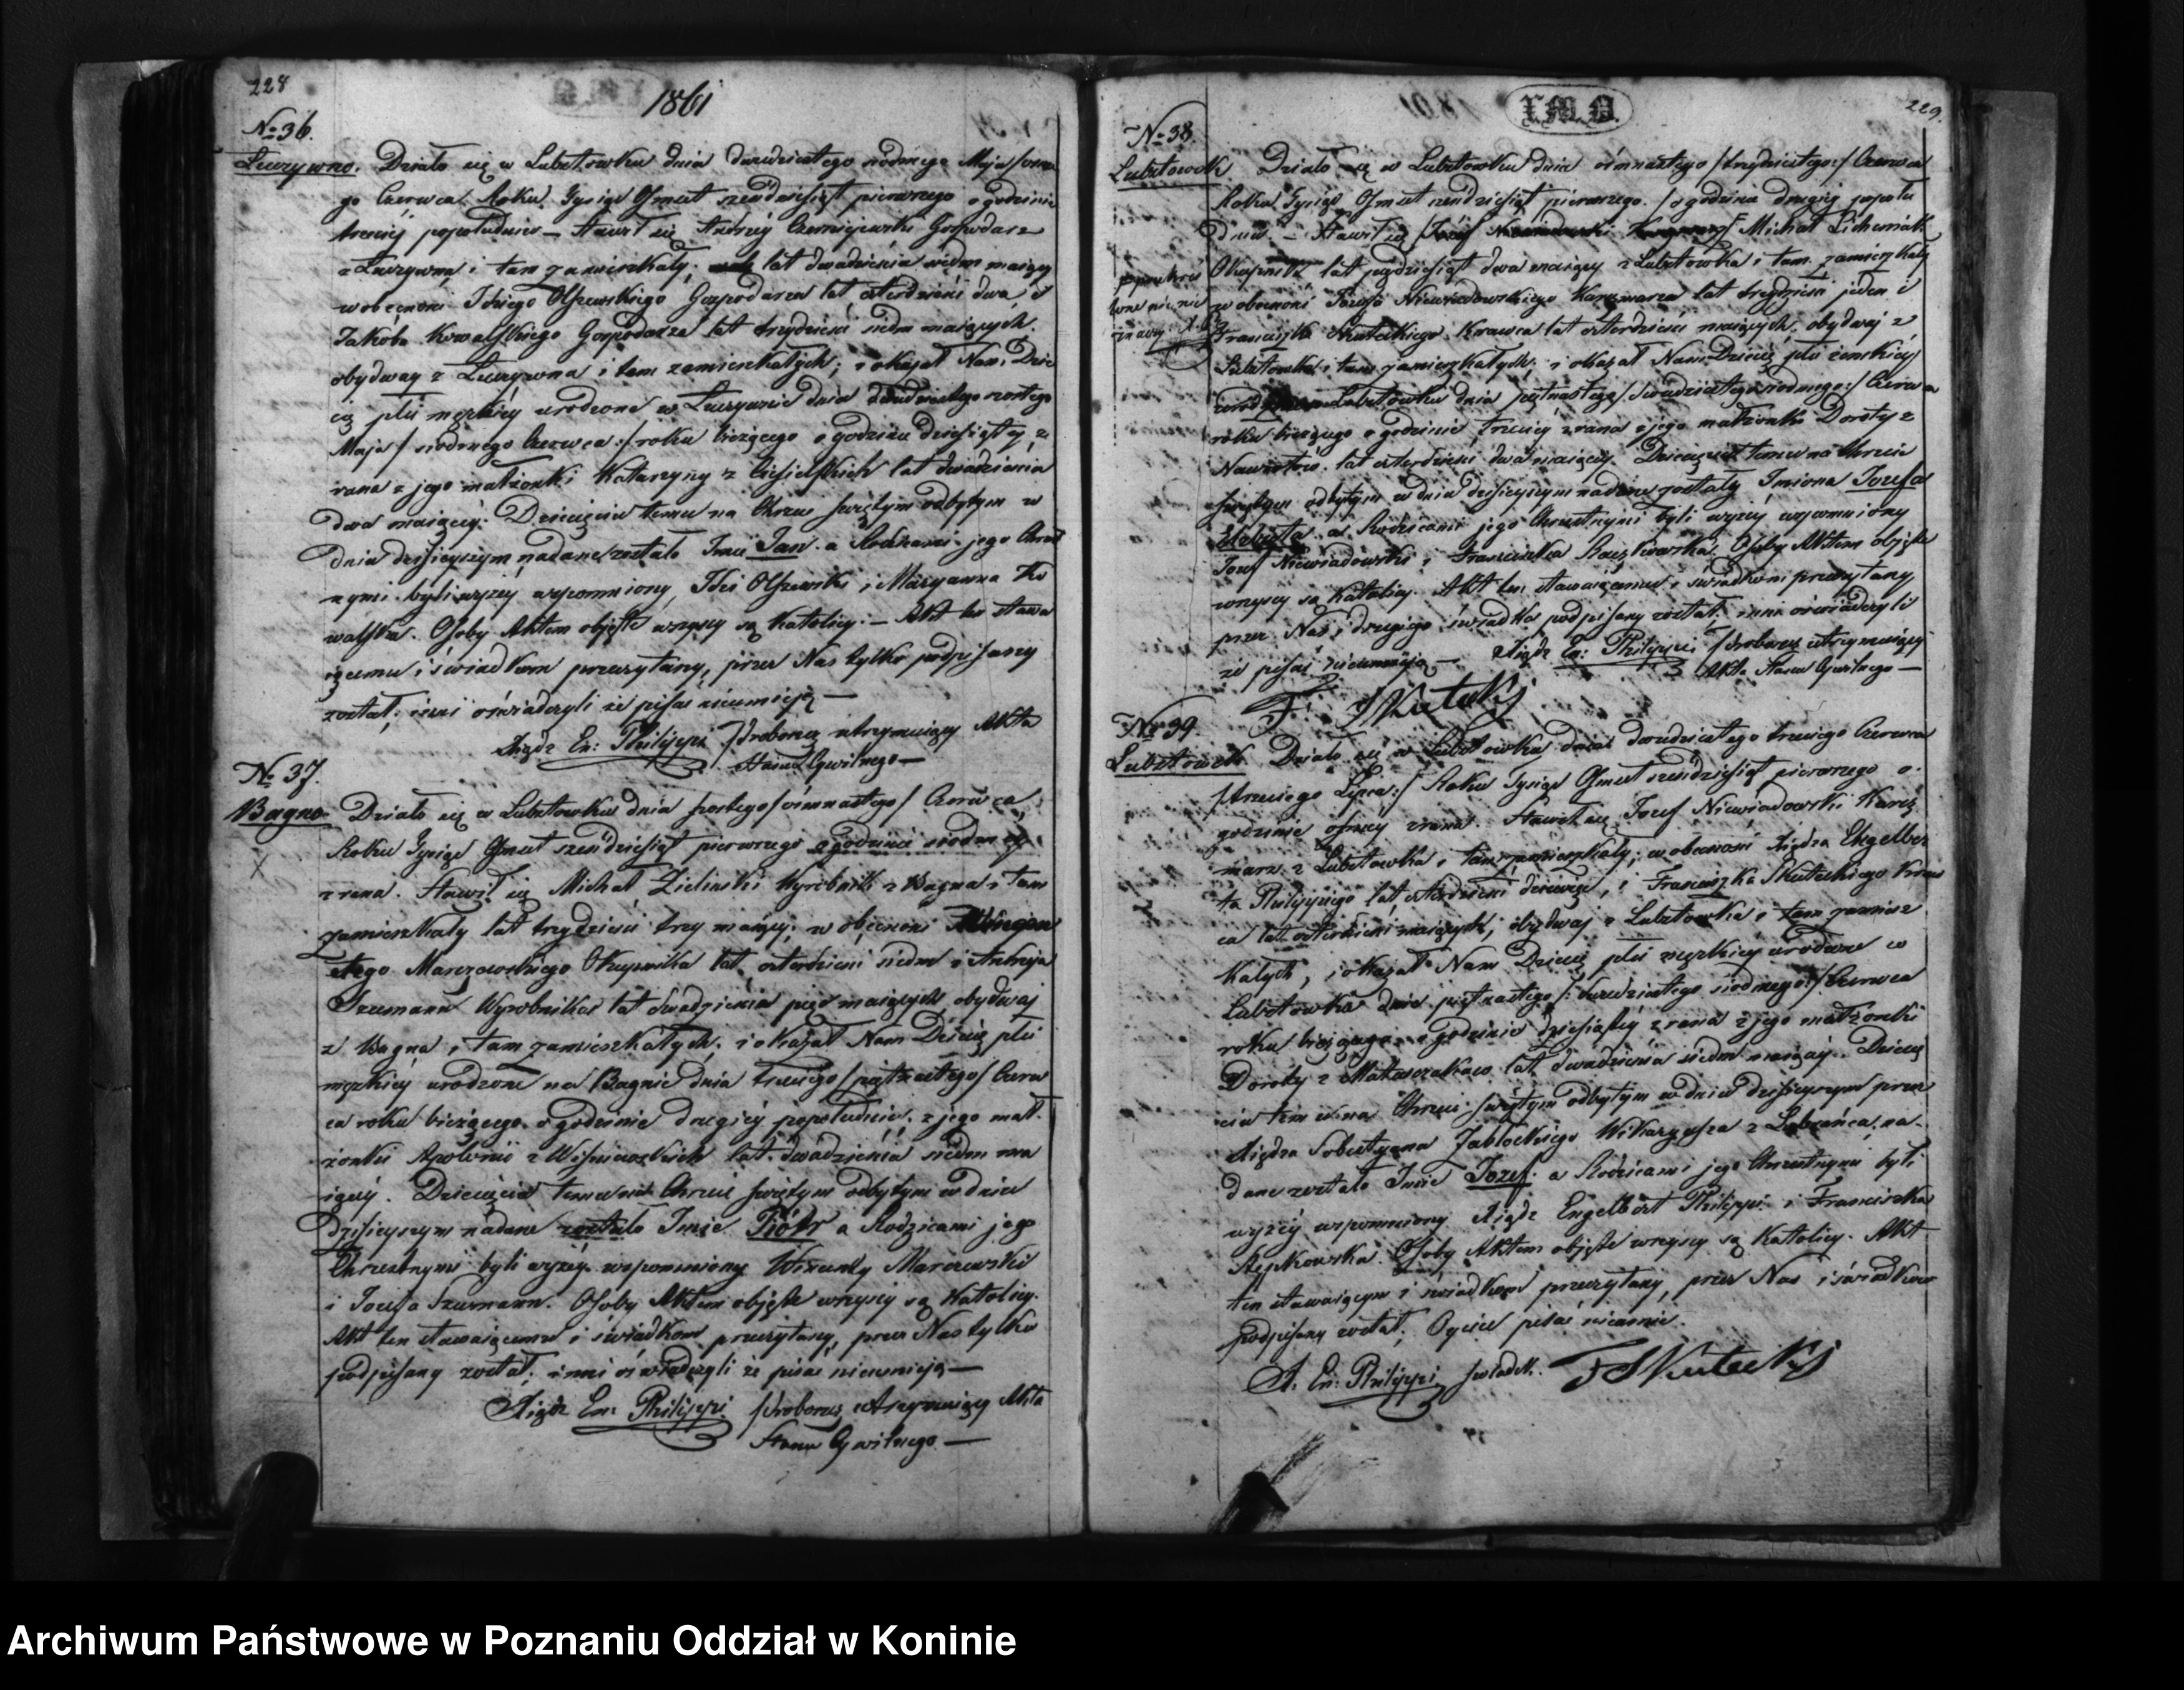 228
1861
№ 36.
Luczywno. Działo się w Lubstowku dnia dwudziestego siódmego Maja /ósme
go Czerwca/ Roku Tysiąc Ośmset sześdziesiąt pierwszego o godzinie
trzeciéj popołudniu — Stawił się Andrzéj Czerniejewski Gospodarz
z Luczywna i tam zamieszkały; lat dwadzieścia siedm maiący
w obecności Idziego Olszewskiego Gospodarza lat czterdzieści dwa i
Jakóba Kowalskiego Gospodarza lat trzydzieści siedm maiących.
obydway z Luczywna i tam zamieszkałych; i okazał Nam Dzie
cię płci męzkiéj urodzone w Luczywnie dnia dwudziestego szóstego
Maja / siódmego Czerwca:/ roku bieżącego o godzinie dziesiątéj z
rana z jego małżonki Katarzyny z Ciesielskich lat dwadzieścia
dwa maiącéj. Dziecięciu temu na Chrzcie świętym odbytym w
dniu dzisieyszym nadane zostało Imie Jan a Rodzicami jego Chrzest
nymi byli wyżéj wspomniony, Idzi Olszewski i Maryanna Ko
walska. Osoby Aktem objęte wszyscy są Katolicy. — Akt ten stawa
iącemu i świadkom przeczytany, przez Nas tylko podpisany
został; inni oświadczyli że pisać nieumieją —
Xiądz En: Philippi Proboszcz utrzymuiący Akta
Stanu Cywilnego —
№ 37.
Bagno Działo się w Lubstowku dnia szóstego /ośmnastego/ Czerwca
Roku Tysiąc Ośmset sześdziesiąt pierwszego o godzinie siódméj
z rana. Stawił się Michał Zieliński Wyrobnik z Bagna i tam
zamieszkały lat trzydzieści trzy maiący; w obecności
Marczewskiego Okupnika lat czterdzieści siedm i Andrzeja
Szumann Wyrobnika lat dwadzieścia pięć maiących obydwaj
z Bagna i tam zamieszkałych; i okazał Nam Dziecię płci
męzkiéj urodzone na Bagnie dnia trzeciego /piętnastego/ Czerw
ca roku bieżącego o godzinie drugiéj popołudniu, z jego mał.
żonki Apolonii z Wiśniewskich lat dwadzieścia siedm ma
iącéj. Dziecięciu temu na Chrzcie świętym odbytym w dniu
dzisieyszym nadane zostało Imie Piótr a Rodzicami jego
Chrzestnymi byli wyżéj wspomniony Wincenty Marczewski
i Jozefa Szumann. Osoby Aktem objęte wszyscy są Katolicy.
Akt ten stawaiącemu i świadkom przeczytany, przez Nas tylko
podpisany został; inni oświadczyli że pisać nieumieją —
Xiądz En: Philippi Proboszcz utrzymuiący Akta
Stanu Cywilnego —
229.
№ 38.
Lubstowek. Działo się w Lubstowku dnia ośmnastego /trzydziestego:/ Czerwca
Roku Tysiąc Ośmset sześdziesiąt pierwszego. o godzinie drugiéj popołu
dniu. — Stawił się Michał Licherniak
Okupnik lat piędziesiąt dwa maiący z Lubstowka i tam zamieszkały
w obecności Józefa Niewiadowskiego Karczmarza lat trzydzieści jeden i
Franciszka Skuteckiego Krawca lat czterdzieści maiących, obydwaj z
Lubstowka i tam zamieszkałych; i okazał Nam Dziecię płci żenskiéj
Lubstowku dnia piętnastego / dwudziestego siódmego:/ Czerwca
roku bieżącego o godzinie trzeciéj z rana z jego małżonki Doroty z
Nawrotów lat czterdzieści dwa maiącéj. Dziecięciu temu na Chrzcie
świętym odbytym w dniu dzisieyszym nadane zostały Imiona Jozefa
a Rodzicami jego Chrzestnymi byli wyżéj wspomniony
Jozef Niewiadowski i Franciszka. Osoby Aktem objęte
wszyscy są Katolicy. Akt ten stawaiącemu i świadkom przeczytany
przez Nas i drugiego świadka podpisany został; inni oświadczyli
że pisać nieumieją — Xiądz En: Philippi Proboszcz utrzymuiący
Akta Stanu Cywilnego —
F. Skutecki
№ 39.
Lubstowek Działo się w Lubstowku dnia dwudziestego trzeciego Czerwca
/trzeciego Lipca:/ Roku Tysiąc Ośmset sześdziesiąt pierwszego o
godzinie ósméj z rana. Stawił się Jozef Niewiadowski Karcz
marz z Lubstowka i tam zamieszkały; w obecności Xiędza Engelber
ta Philippiego lat czterdzieści dziewięć, i Franciszka Skuteckiego Kraw
ca lat czterdzieści maiących; obydwaj z Lubstowka i tam zamiesz
kałych, i okazał Nam Dziecię płci męzkiéj urodzone w
Lubstowku dnia piętnastego /: dwudziestego siódmego:/ Czerwca
roku bieżącego o godzinie dziesiątéj z rana z jego małżonki
Doroty z Matuszaków lat dwadzieścia siedm maiącéj. Dziecię
ciu temu na Chrzcie świętym odbytym w dniu dzisieyszym przez
Xiędza Sobestyana Jabłockiego Wikaryusza z Lubrańca na-
dane zostało Imie Jozef a Rodzicami jego Chrzestnymi byli
wyżéj wspomniony Xiądz Engelbert Philippi i Franciszka
Rępkowska. Osoby Aktem objęte wszyscy są Katolicy. Akt
ten stawaiącym i świadkom przeczytany, przez Nas i świadków
podpisany został; Oyciec pisać nieumie.
X. En: Philippi świadek. F Skutecki
Archiwum Państwowe w Poznaniu Oddział w Koninie